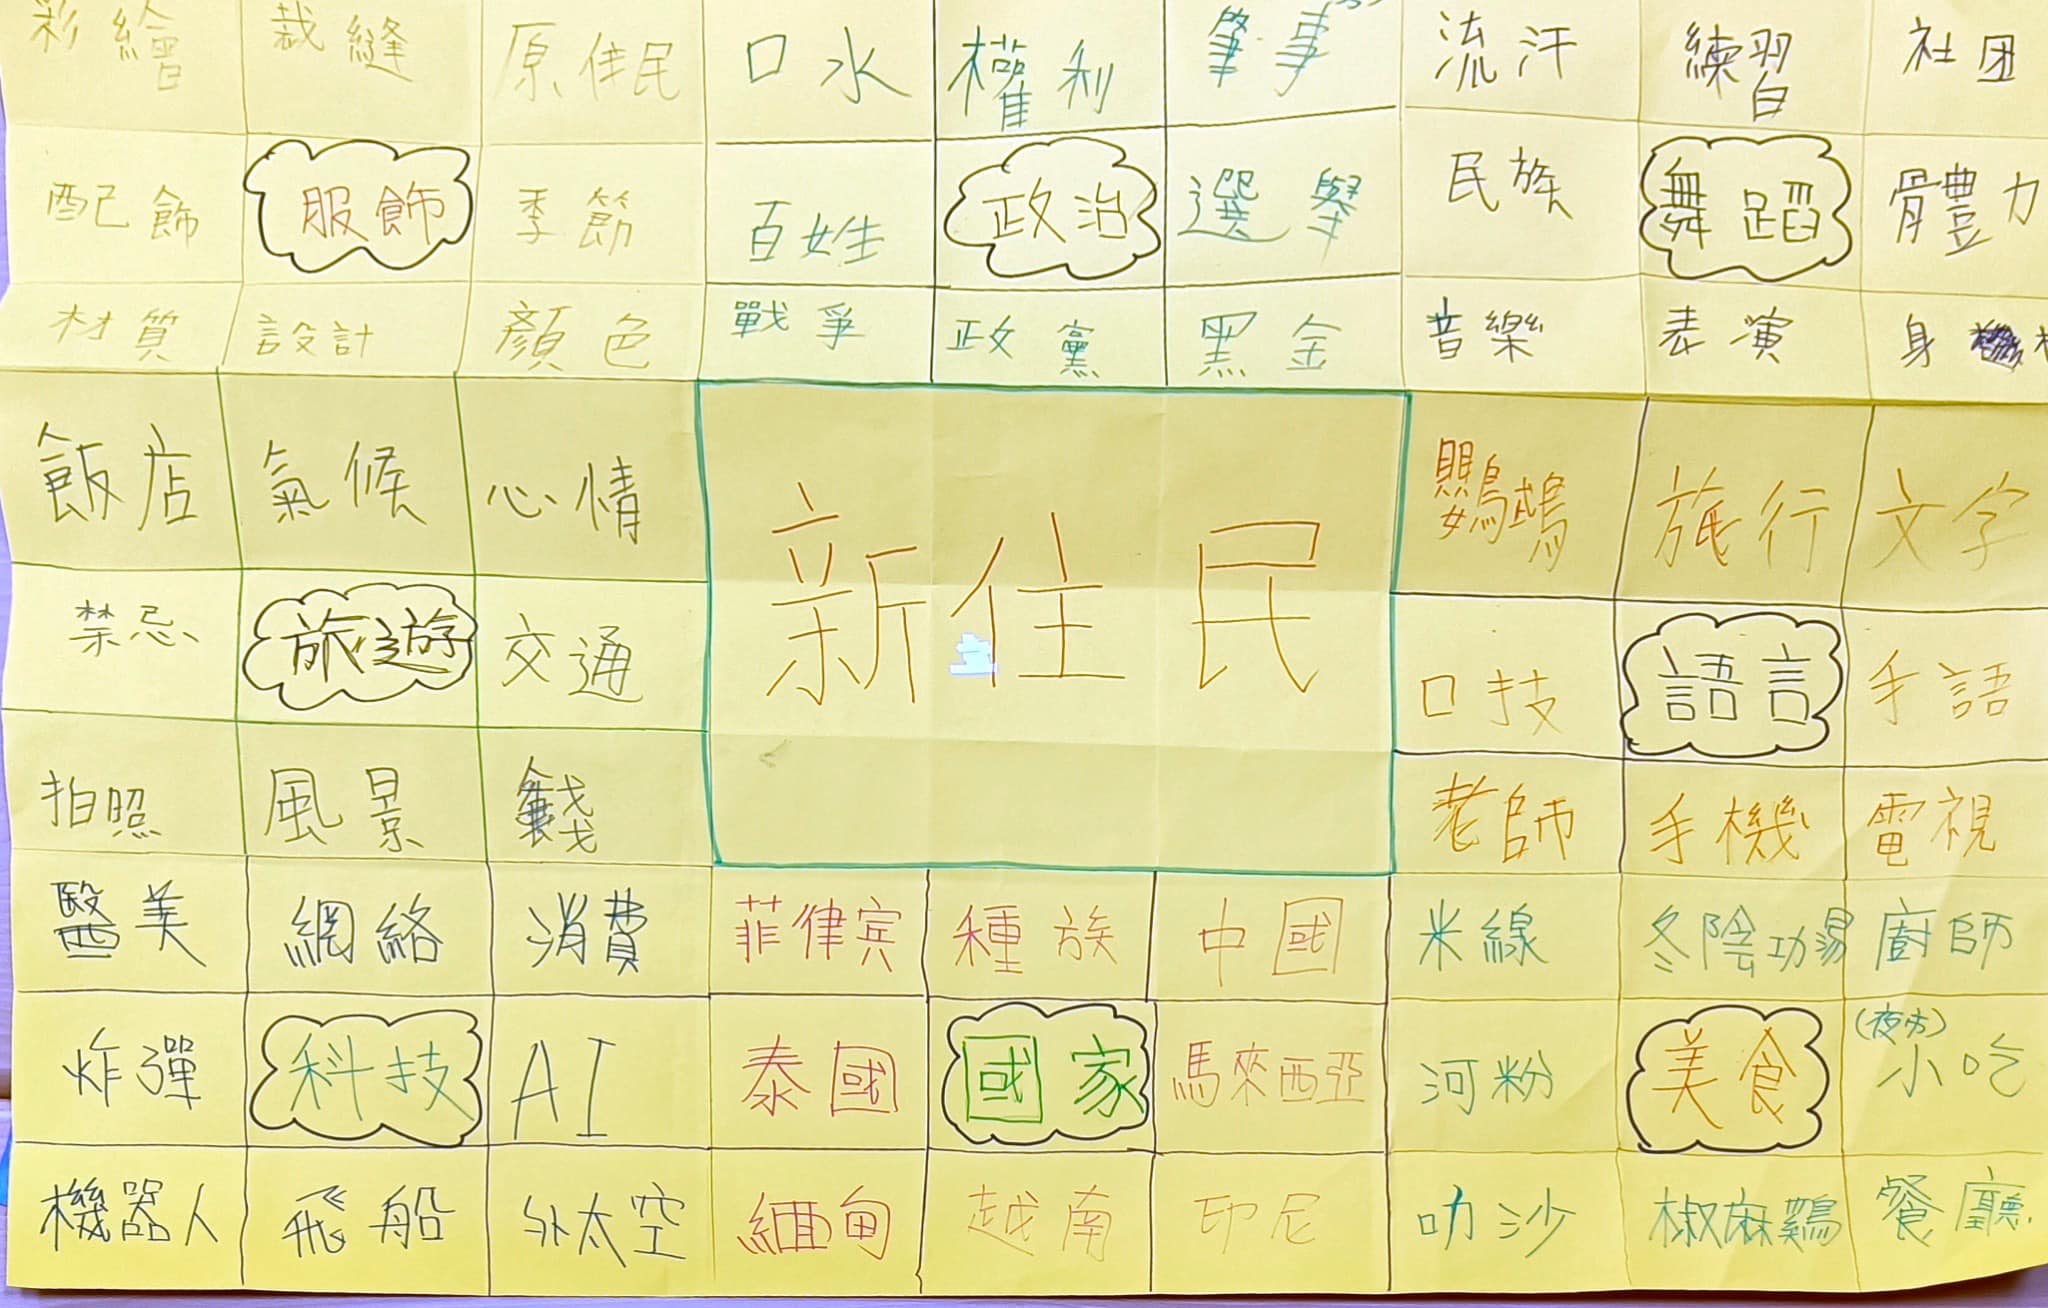 彩繪 裁縫 原住民 口水 權利 肇事 流汗 練習 社团
配飾 服飾 季節 百姓 政治 選舉 民族 舞蹈 體力
材質 設計 顏色 戰爭 政黨 黑金 音樂 表演 身
飯店 氣候 心情 鸚鵡 旅行 文字
新住民
禁忌 旅遊 交通 口技 語言 手語
拍照 風景 錢 老師 手機 電視
醫美 網絡 消費 菲律宾 種族 中國 米線 冬陰功湯 廚師
炸彈 科技 AI 泰國 國家 馬來西亞 河粉 美食 (夜市)小吃
機器人 飛船 外太空 緬甸 越南 印尼 叻沙 椒麻鷄 餐廳